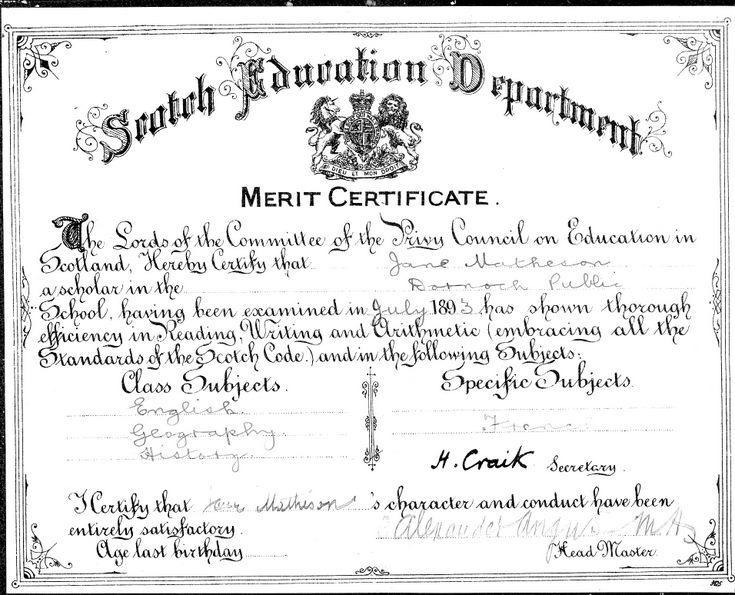 Scotch Education Department.
DIEU ET MON DROIT
MERIT CERTIFICATE.
The Lords of the Committee of the Privy Council on Education in
Scotland, Hereby Certify that Jane Matheson
a scholar in the Dornoch Public
School, having been examined in July 1893 has shown thorough
efficiency in Reading, Writing and Arithmetic (embracing all the
Standards of the Scotch Code.) and in the following Subjects:
Class Subjects. Specific Subjects.
English.
Geography. Frenc
History.
H. Craik Secretary.
I Certify that Matheson 's character and conduct have been
entirely satisfactory. Alexander Angus M.A.
Age last birthday Head Master.